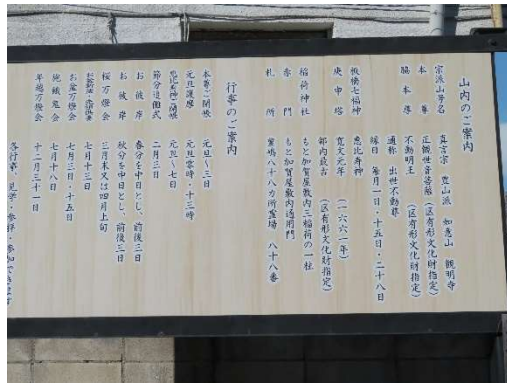 山内のご案内
宗派山号名　真言宗　豊山派　如意山　観明寺
本尊　正観世音菩薩（区有形文化財指定）
脇本尊　不動明王（区有形文化財指定）
通称　出世不動尊
縁日　毎月一日・十五日・二十八日
板橋七福神　恵比寿神
庚申塔　寛文元年（一六六一年）
都内最古（区有形文化財指定）
稲荷神社　もと加賀屋敷内三稲荷の一柱
赤門　もと加賀屋敷内通用門
札所　豊島八十八カ所霊場　八十八番
行事のご案内
本尊ご開帳　元旦〜三日
元旦護摩　元旦零時・十三時
恵比寿神ご開帳　元旦〜七日
節分追儺式　二月三日
お彼岸　春分を中日とし、前後三日
お彼岸　秋分を中日とし、前後三日
桜万燈会　三月末又は四月上旬
七月十三日
お盆万燈会　七月十三日・十五日
施餓鬼会　七月十八日
年越万燈会　十二月三十一日
各行事・見学・参拝・参加できます